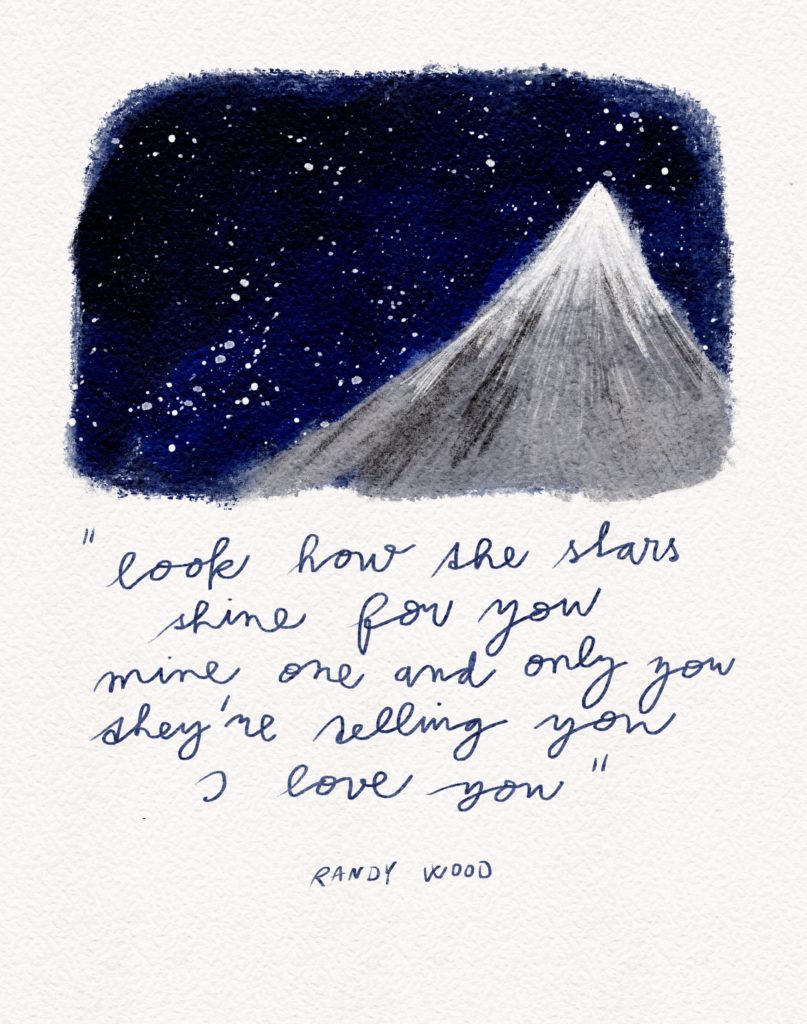 "look how the stars
shine for you
mine one and only you
they're telling you
I love you"
RANDY WOOD